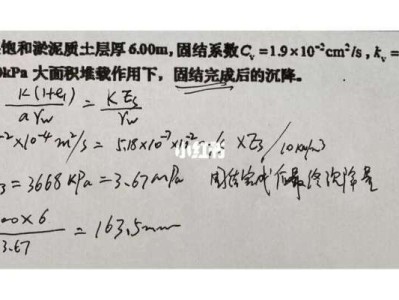 饱和淤泥质土层厚6.00m, 固结系数Cᵥ=1.9×10⁻²cm²/s, kᵥ=
0kPa 大面积堆载作用下, 固结完成后的沉降。
k(1+e₁)/aγw = kEs/γw
⁻²×10⁻⁴m²/s = 5.18×10⁻⁷×10⁻² ×Es/10kN/m³
小红书
= 3668kPa = 3.67mPa 固结完成后最终沉降量
00×6/3.67 = 163.5mm